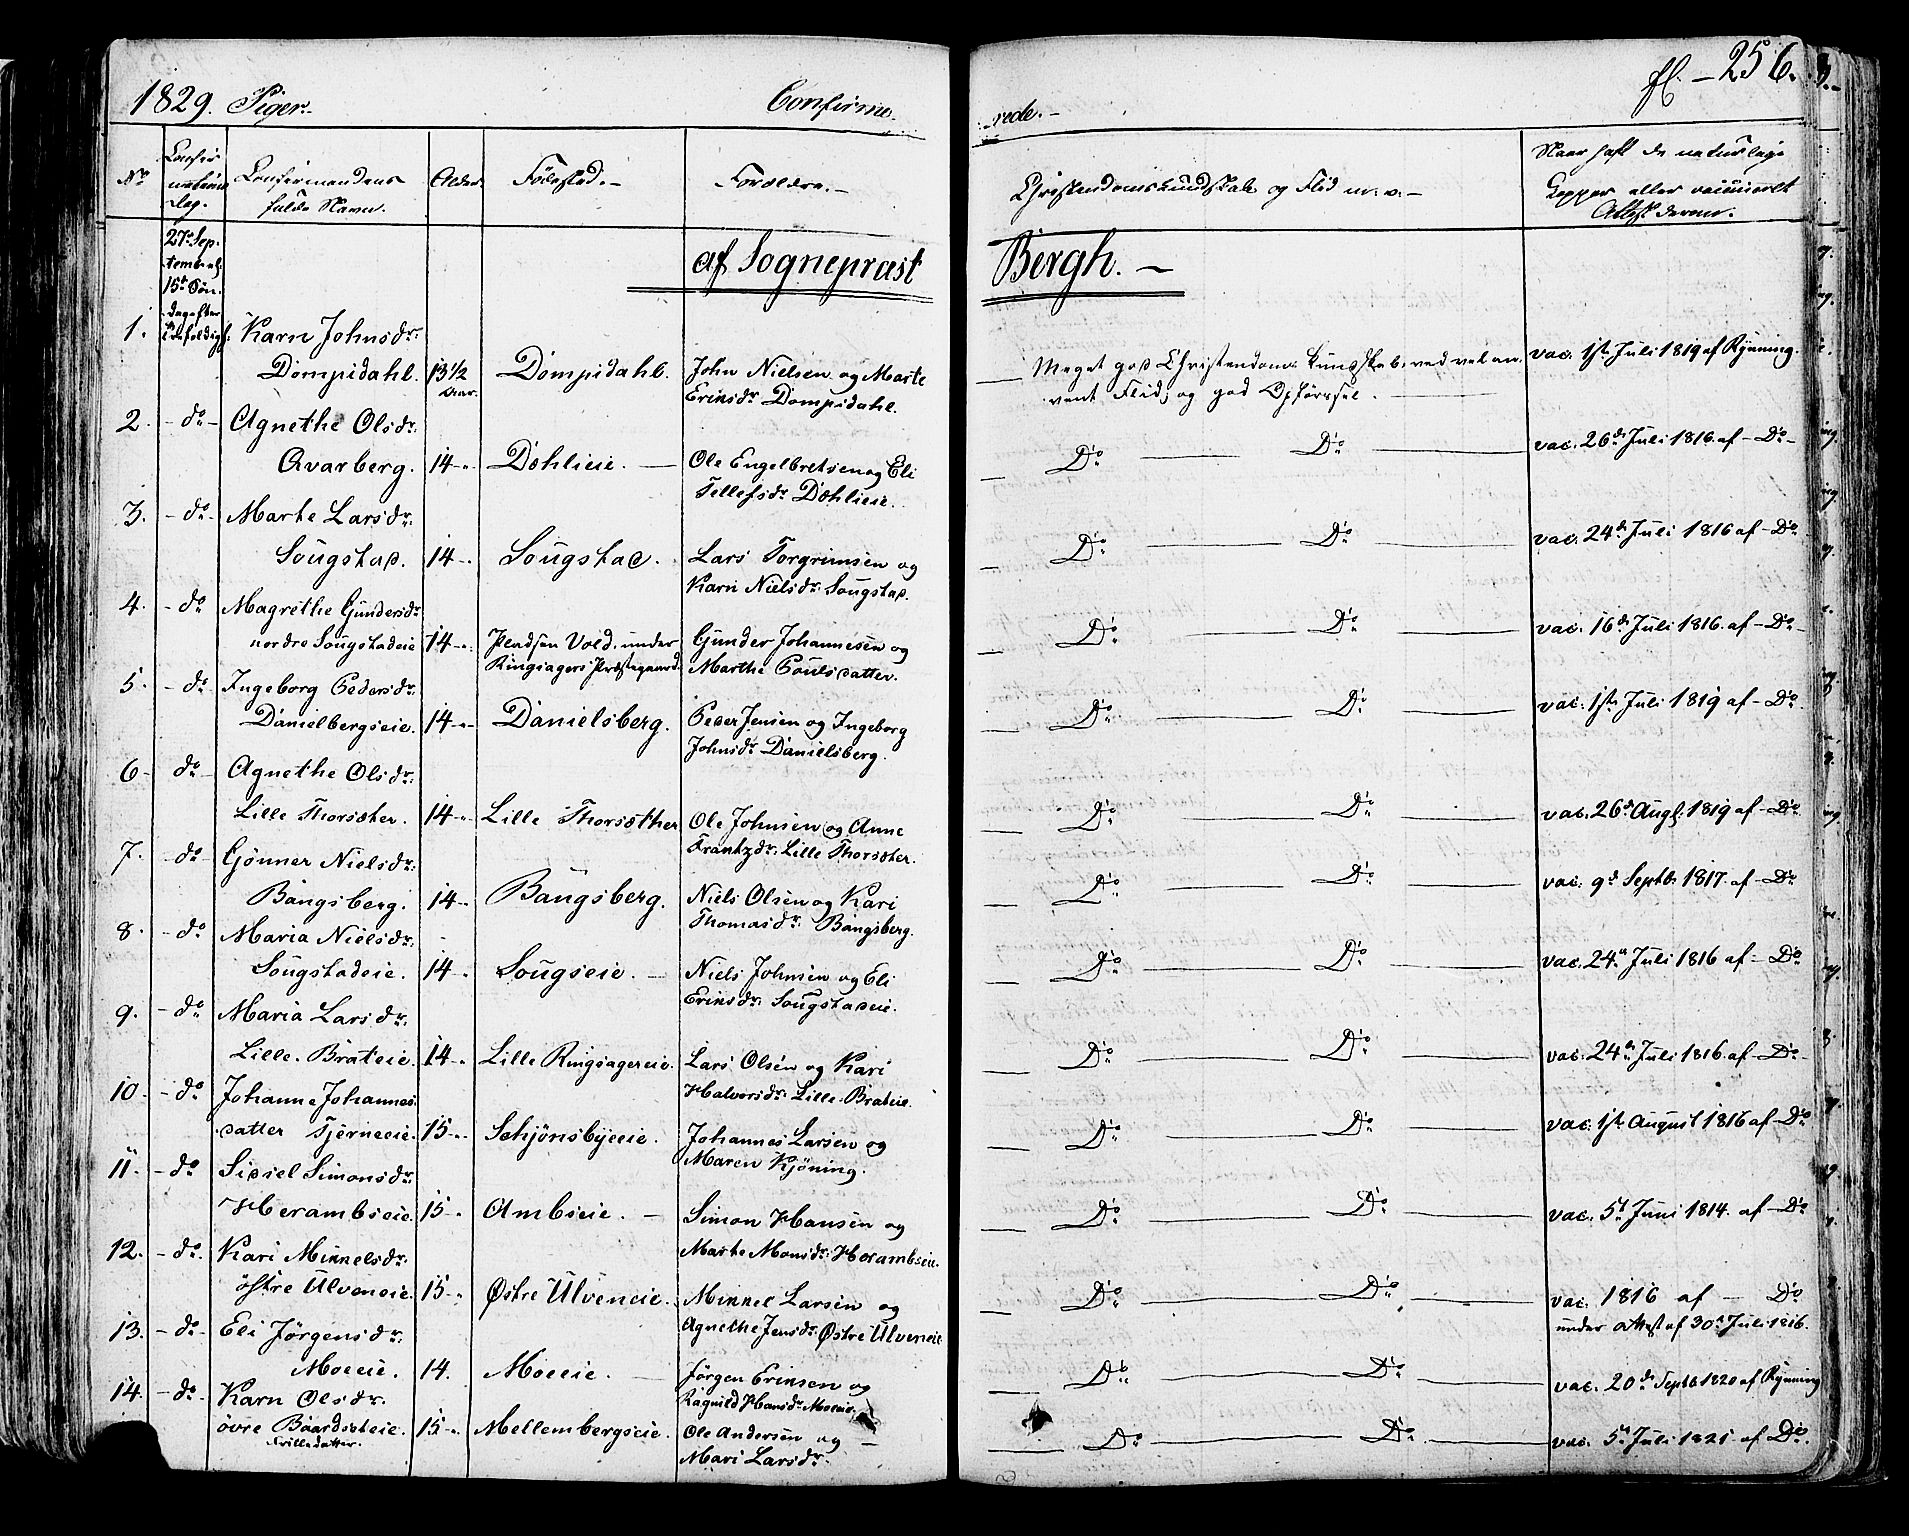 1829. Piger. Confirme-
rede. fl. 256.
No
Confir
mations
Dag.
Confirmandens
fulde Navn.
Alder.
Födested.
Forældre.
Christendomskundskab og Flid m. v.
Naar haft de naturlige
Kopper eller vaccineret
Attest derom.
27de Sep-
temb. al.
15de Søn-
dag efter
Trefoldigh:
af Sognepræst Bergh.
1. Karn Johnsdr:
Dompidahl. 13 1/2 Dompidahl. John Nielsen og Marte
Aar. Eriksdr Dompidahl.
Meget god Christendoms Kundskab, ved vel an-
vent Flid, og god Opförsel.
vac. 1ste Juli 1819 af Kyning.
2. do Agnethe Olsdr:
Avarberg. 14 Döhlieie. Ole Engelbretsen og Eli
Tellefsdr Döhlieie.
Do Do vac. 26de Juli 1816. af Do
3. do Marte Larsdr:
Sougstad. 14 Sougstad. Lars Torgrimsen og
Karn Nielsdr: Sougstad.
Do Do vac. 24de Juli 1816 af Do
4. do Magrethe Gundersdr
nordre Sougstadeie 14 Pladsen Vold, under Gunder Johannesen og
Ringsagers Præstegaard. Marthe Poulsdatter.
Do Do vac. 16de Juli 1816. af Do
5. do Ingeborg Pedersdr.
Danielbergseie. 14 Danielsberg. Peder Jensen og Ingeborg
Johnsdr Danielsberg.
Do Do vac. 1ste Juli 1819 af Do
6 do Agnethe Olsdr:
Lille Thorsæther. 14 Lille Thorsæther Ole Johnsen og Anne
Frantzdr. Lille Thorsæter.
Do Do vac. 26de Augs: 1819 af Do
7. do Gönner Nielsdr:
Bangsberg. 14 Bangsberg. Niels Olsen og Kari
Thomasdr: Bangsberg.
Do Do vac: 9d Septb. 1817. af Do
8. do Maria Nielsdr:
Sougstadeie. 14 Sougseie. Niels Johnsen og Eli
Eriksdr: Sougstadeie.
Do Do vac. 24de Juli 1816 af Do
9. do Maria Larsdr:
Lille Brateie 14 Lille Ringsagereie. Lars Olsen og Kari
Halvorsdr: Lille Brateie.
Do Do vac. 24de Juli 1816. af Do
10. do Johanne Johannes-
datter Tjerneeie. 15 Schjönsbyeeie. Johannes Larsen og
Maren Kjöning.
Do Do vac. 1ste August 1816 af Do
11 do Sidsel Simonsdr:
Herambseie. 15 Ambseie. Simon Hansen og
Marte Monsdr: Herambseie.
Do Do vac. 5te Juni 1814. af Do
12. do Kari Mikkelsdr.
östre Ulveneie. 15 Østre Ulveneie. Mikkel Larsen og
Agnethe Jensdr: Østre Ulveneie
Do Do vac. 1816 af Do
under Attest af 30te Juli 1816.
13. do Eli Jörgensdr.
Moeeie. 14. Moeeie. Jörgen Eriksen og
Ragnild Hansdr. Moeeie.
Do Do vac. 20de Septb 1820 af Kyning
14. do Karn Olsdr.
övre Baardsetheie. 15 Mellembergseie. Ole Andersen og
Frilledatter. Mari Larsdr.
Do Do vac. 5te Juli 1821 af Do.